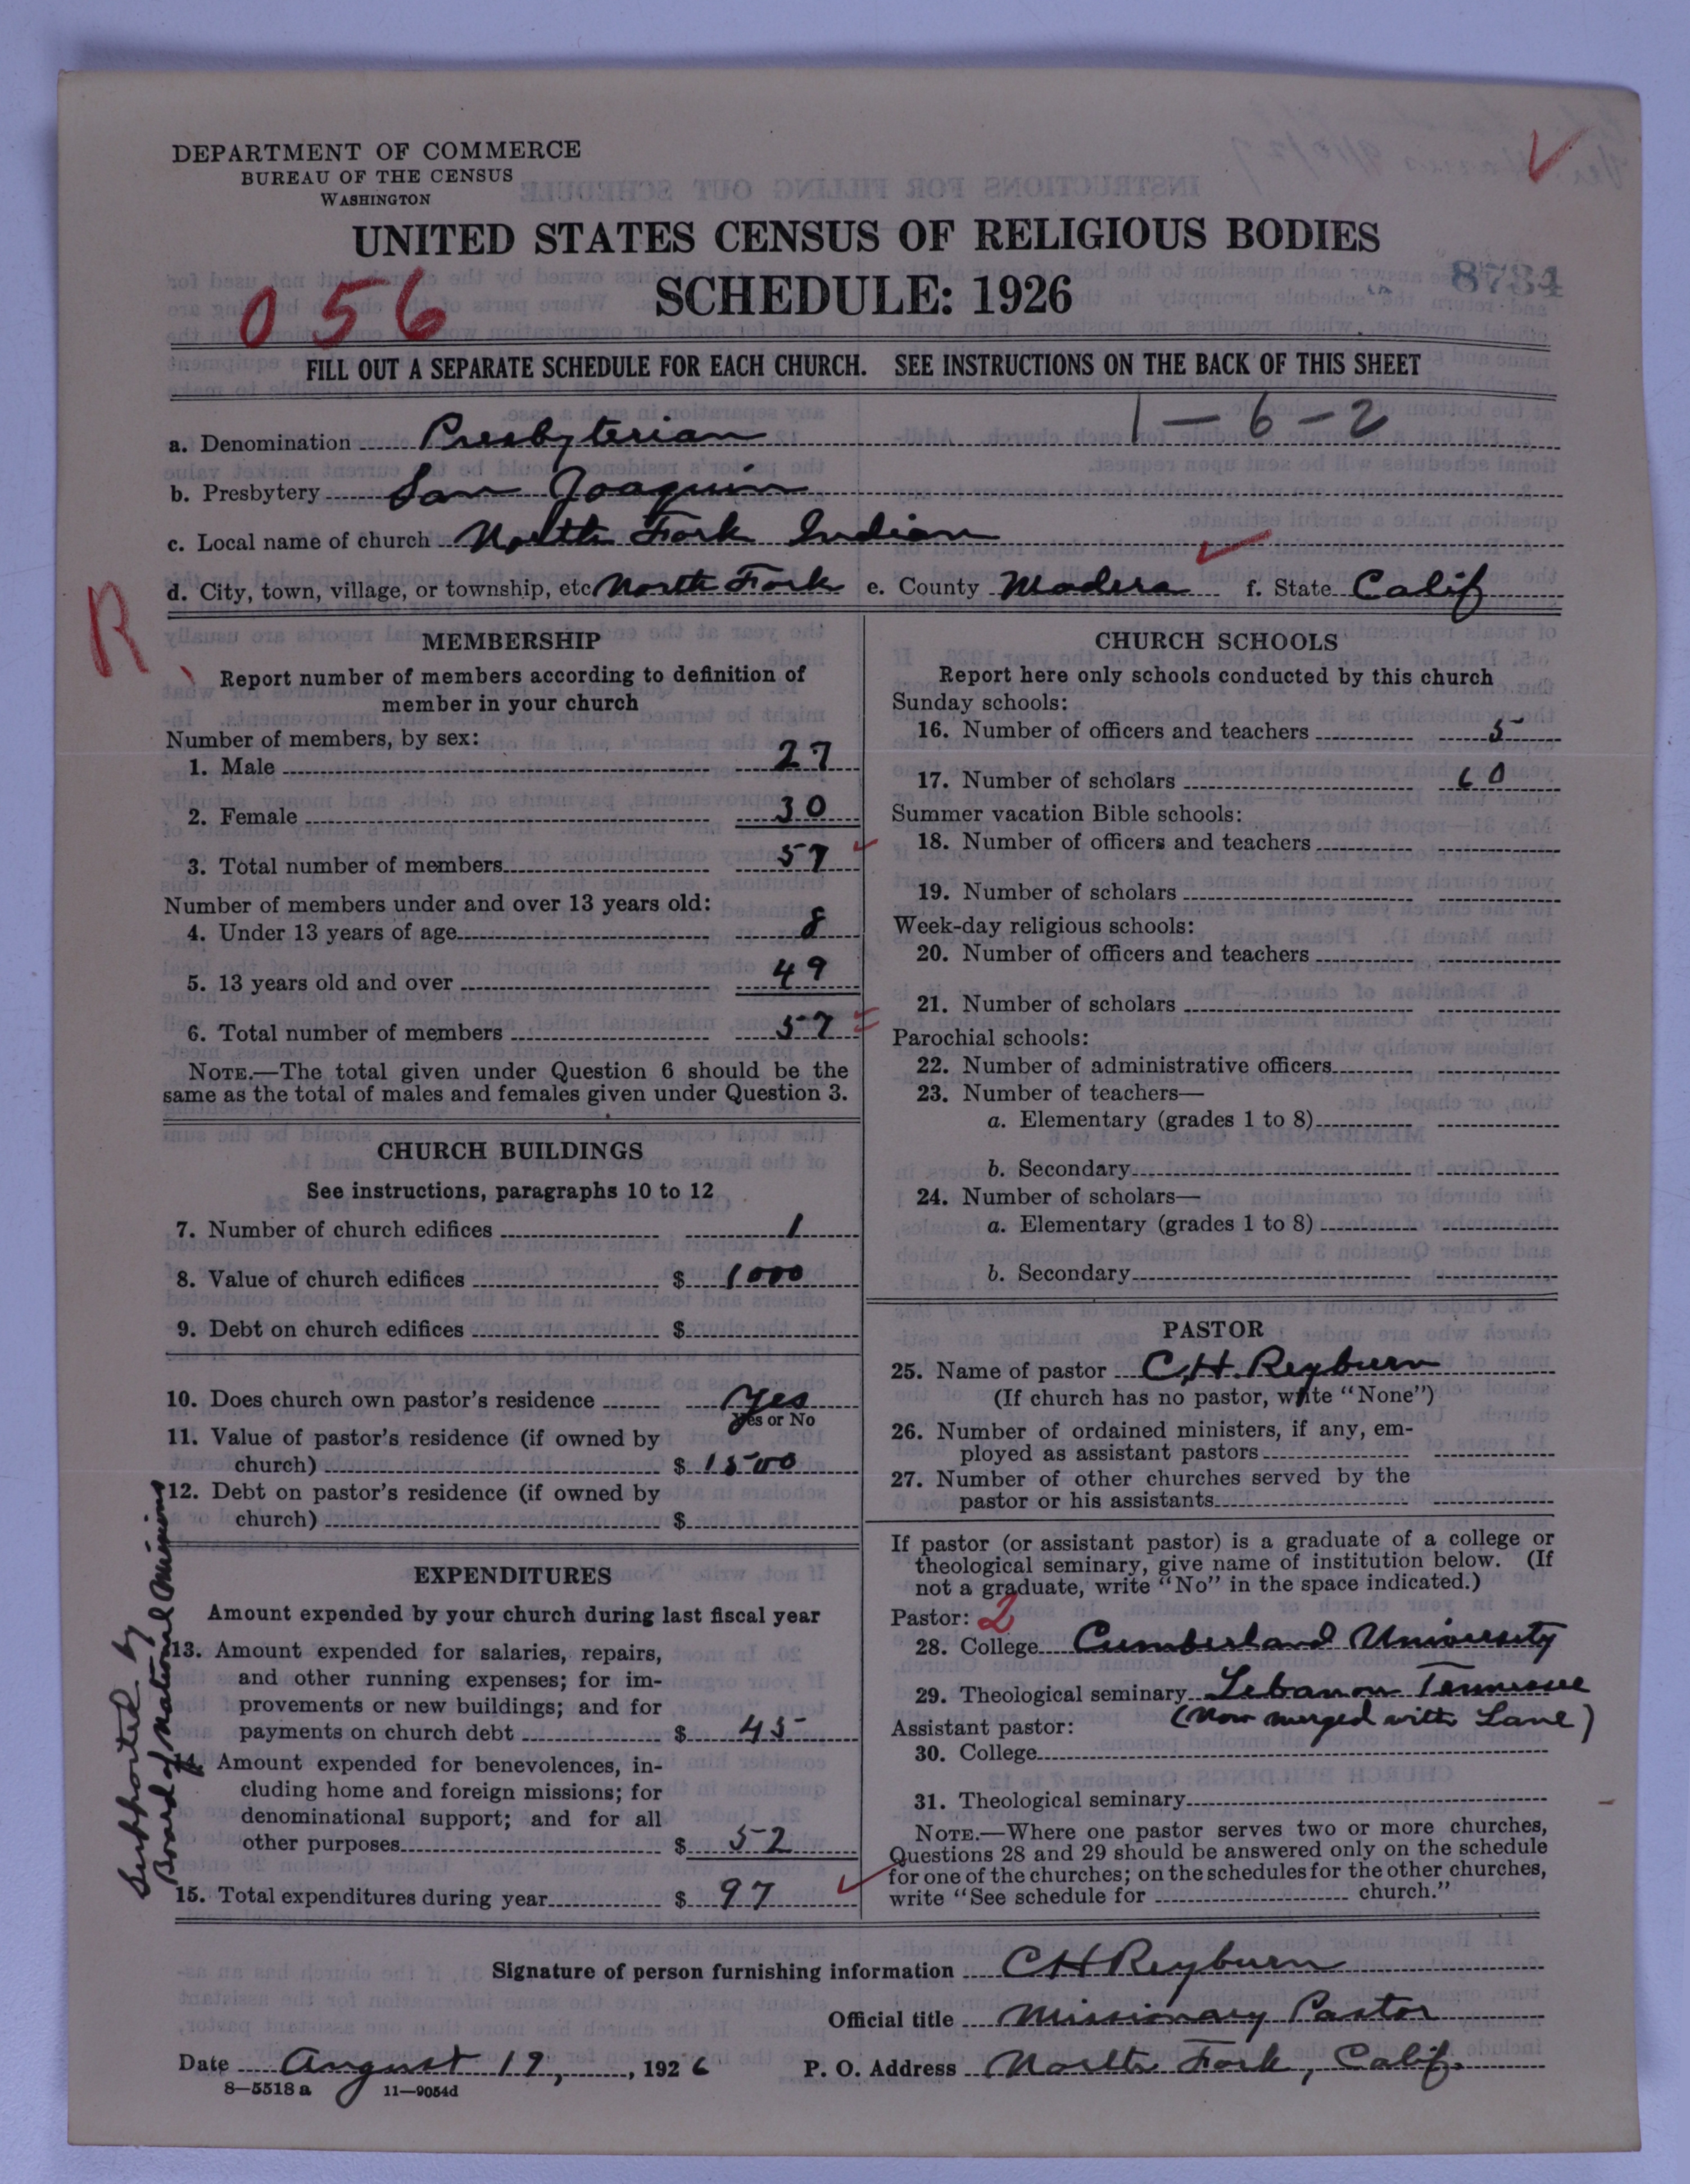 DEPARTMENT OF COMMERCE
BUREAU OF THE CENSUS
WASHINGTON
UNITED STATES CENSUS OF RELIGIOUS BODIES
SCHEDULE: 1926
8784
056
FILL OUT A SEPARATE SCHEDULE FOR EACH CHURCH. SEE INSTRUCTIONS ON THE BACK OF THIS SHEET
1-6-2
a. Denomination Presbyterian
b. Presbytery San Joaquin
c. Local name of church North Fork Indian
d. City, town, village, or township, etc North Fork e. County Madera f. State Calif
R
MEMBERSHIP
Report number of members according to definition of
member in your church
Number of members, by sex:
1. Male 27
2. Female 30
3. Total number of members 57
Number of members under and over 13 years old:
4. Under 13 years of age 8
5. 13 years old and over 49
6. Total number of members 57
NOTE.—The total given under Question 6 should be the
same as the total of males and females given under Question 3.
CHURCH BUILDINGS
See instructions, paragraphs 10 to 12
7. Number of church edifices 1
8. Value of church edifices $ 1000
9. Debt on church edifices $
10. Does church own pastor's residence Yes
Yes or No
11. Value of pastor's residence (if owned by
church) $ 1500
12. Debt on pastor's residence (if owned by
church) $
EXPENDITURES
Amount expended by your church during last fiscal year
13. Amount expended for salaries, repairs,
and other running expenses; for im-
provements or new buildings; and for
payments on church debt $ 45
14. Amount expended for benevolences, in-
cluding home and foreign missions; for
denominational support; and for all
other purposes $ 52
15. Total expenditures during year $ 97
Supported by
Board of National Missions
CHURCH SCHOOLS
Report here only schools conducted by this church
Sunday schools:
16. Number of officers and teachers 5
17. Number of scholars 60
Summer vacation Bible schools:
18. Number of officers and teachers
19. Number of scholars
Week-day religious schools:
20. Number of officers and teachers
21. Number of scholars
Parochial schools:
22. Number of administrative officers
23. Number of teachers—
a. Elementary (grades 1 to 8)
b. Secondary
24. Number of scholars—
a. Elementary (grades 1 to 8)
b. Secondary
PASTOR
25. Name of pastor C. H. Reyburn
(If church has no pastor, write "None")
26. Number of ordained ministers, if any, em-
ployed as assistant pastors
27. Number of other churches served by the
pastor or his assistants
If pastor (or assistant pastor) is a graduate of a college or
theological seminary, give name of institution below. (If
not a graduate, write "No" in the space indicated.)
Pastor: 2
28. College Cumberland University
29. Theological seminary Lebanon Tennessee
(Now merged with Lane)
Assistant pastor:
30. College
31. Theological seminary
NOTE.—Where one pastor serves two or more churches,
Questions 28 and 29 should be answered only on the schedule
for one of the churches; on the schedules for the other churches,
write "See schedule for church."
Signature of person furnishing information CH Reyburn
Official title Missionary Pastor
Date August 19, 1926 P. O. Address North Fork, Calif.
8—5518 a 11—9054d